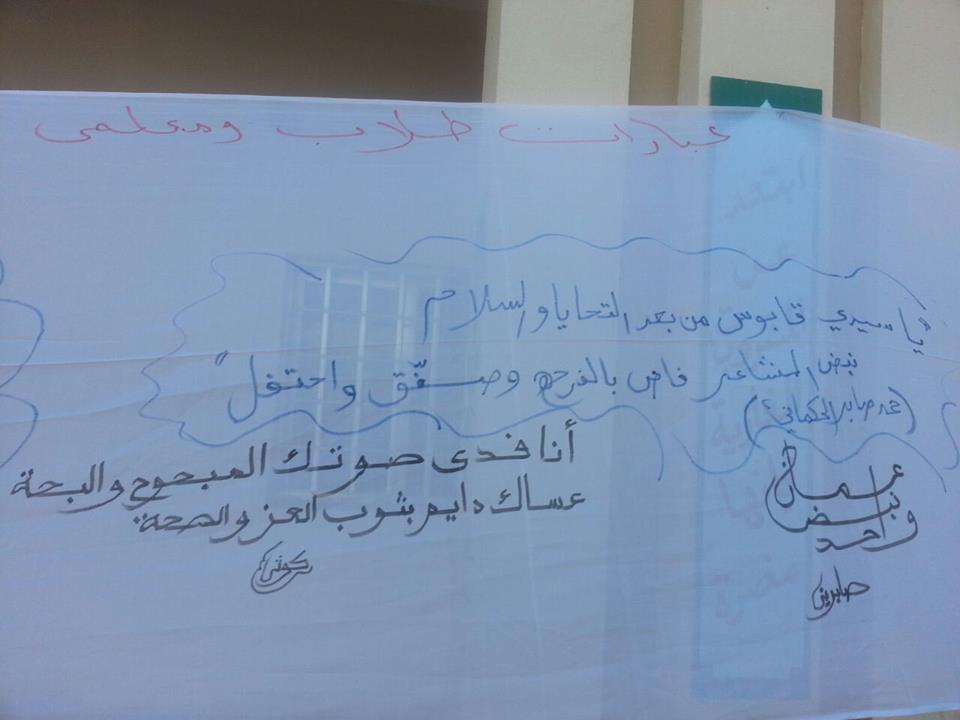 عبارات طلاب ومعلمي
"يا سيدي قابوس من بعد التحايا والسلام
نبض المشاعر فاض بالفرحه وصفّق واحتفل"
(محمد صابر الحكماني)
أنا فدى صوتك المبحوح والبحة
عساك دايم بثوب العز والصحة
كوثر
عمان
نبض
واحد
صابرين
ابتعد
عن